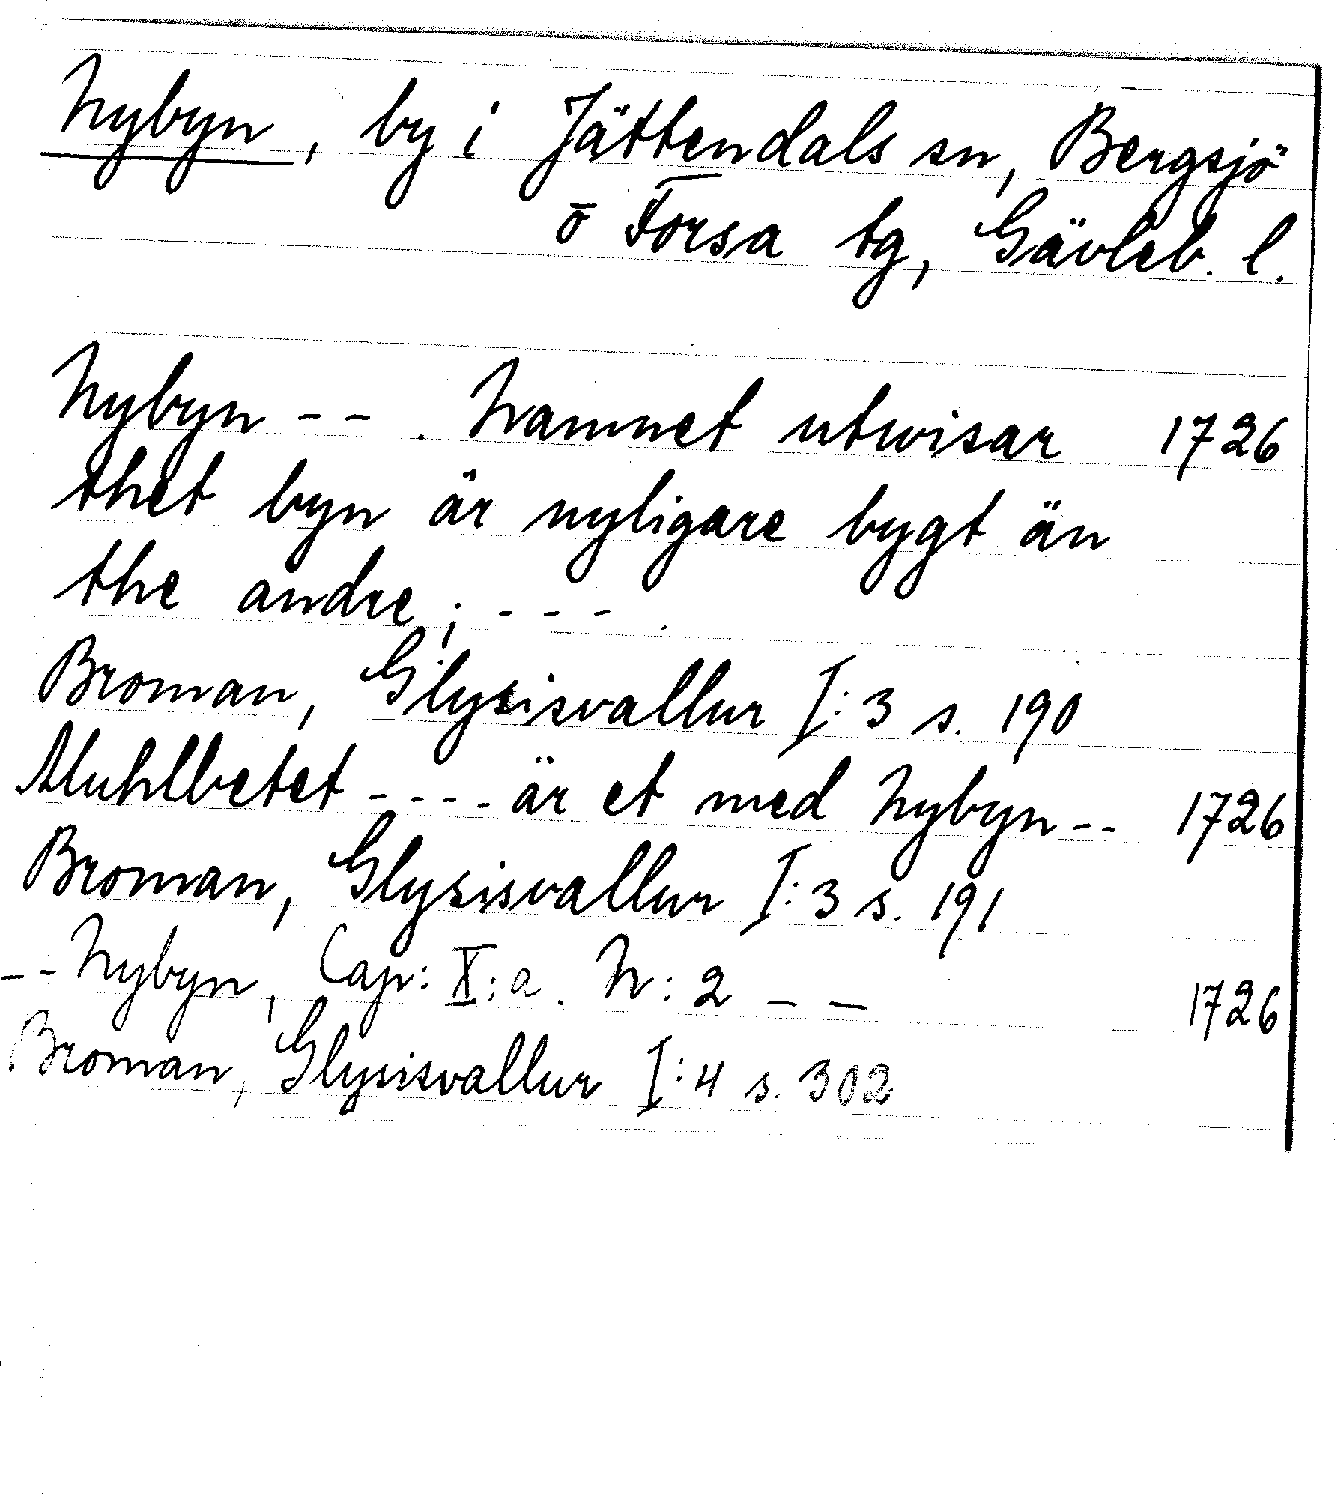 Nybyn, by i Jättendals sn, Bergsjö
o Forsa tg, Gävleb. l.
Nybyn -- . Namnet utwisar 1726
thet byn är nyligare bygt än
the andre; --- .
Broman, Glysisvallur I:3 s. 190
Muhlbetet ---- är et med Nybyn -- 1726
Broman, Glysisvallur I:3 s. 191
-- Nybyn, Cap: X:a. N:2 -- 1726
Broman, Glysisvallur I:4 s. 302